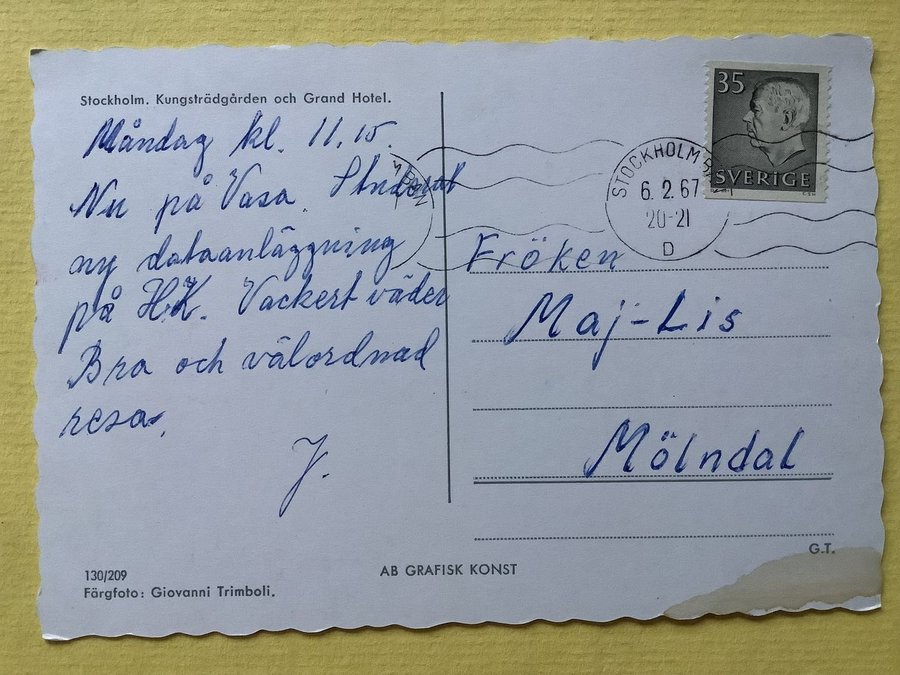 Stockholm. Kungsträdgården och Grand Hotel.
Måndag kl. 11.15.
Nu på Vasa.
ny dataanläggning
på H.K. Vackert väder
Bra och välordnad
resa.
J.
130/209
Färgfoto: Giovanni Trimboli.
AB GRAFISK KONST
35
SVERIGE
STOCKHOLM
6. 2. 67
20-21
D
Fröken
Maj-Lis
Mölndal
G.T.